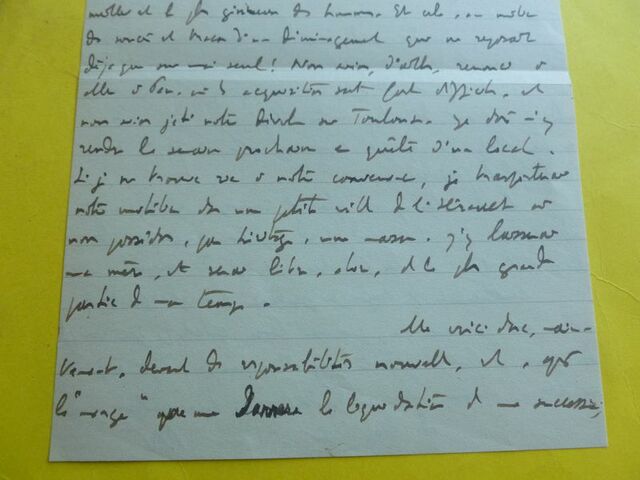 et le plus généreux des hommes. Et cela, au milieu
des soucis et tracas d'un déménagement que ne reposait
déjà que sur moi seul! Nous avons, d'ailleurs, renoncé à
aller à Pau, où les acquisitions sont fort difficiles, et
nous avons jeté notre dévolu sur Toulouse. Je dois m'y
rendre la semaine prochaine en quête d'un local.
Si je ne trouve rien à notre convenance, je transporterai
notre mobilier dans une petite ville de l'Hérault où
nous possédons, par héritage, une maison. J'y laisserai
ma mère, et serai libre, alors, de la plus grande
partie de mon temps.
Me voici donc, main-
tenant, devant des responsabilités nouvelles, et, après
le que me la liquidation de ma succession,